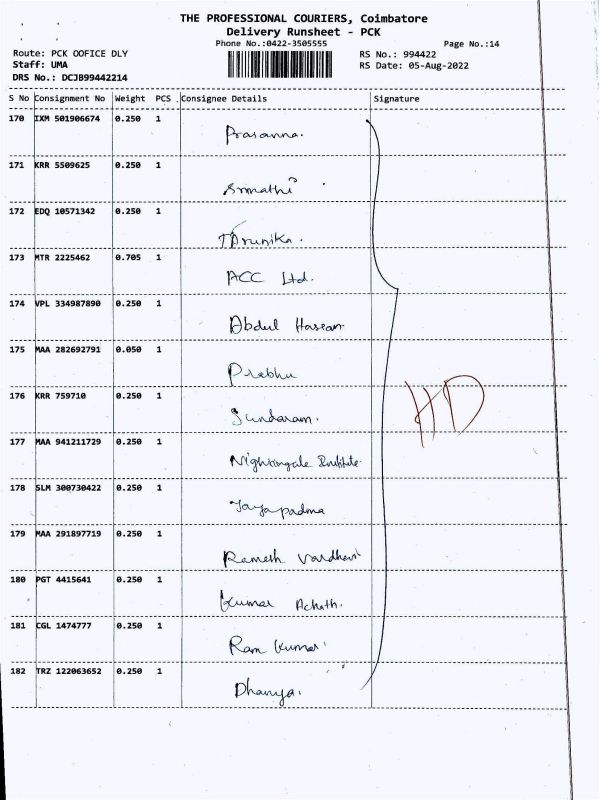 THE PROFESSIONAL COURIERS, Coimbatore
Delivery Runsheet - PCK
Phone No.:0422-3505555
Page No.:14
Route: PCK OOFICE DLY
RS No.: 994422
Staff: UMA
RS Date: 05-Aug-2022
DRS No.: DCJB99442214
S No Consignment No Weight PCS Consignee Details Signature
170 IXM 501906674 0.250 1
Prasanna.
171 KRR 5509625 0.250 1
172 EDQ 10571342 0.250 1
Tharunika.
173 MTR 2225462 0.705 1
ACC Ltd.
174 VPL 334987890 0.250 1
Abdul Hassan
175 MAA 282692791 0.050 1
Prabhu
176 KRR 759710 0.250 1
Sundaram.
HD
177 MAA 941211729 0.250 1
Nightingale Institute
178 SLM 300730422 0.250 1
Jayapadma
179 MAA 291897719 0.250 1
Ramesh
180 PGT 4415641 0.250 1
Kumar
181 CGL 1474777 0.250 1
Ram Kumar
182 TRZ 122063652 0.250 1
Dhanya.